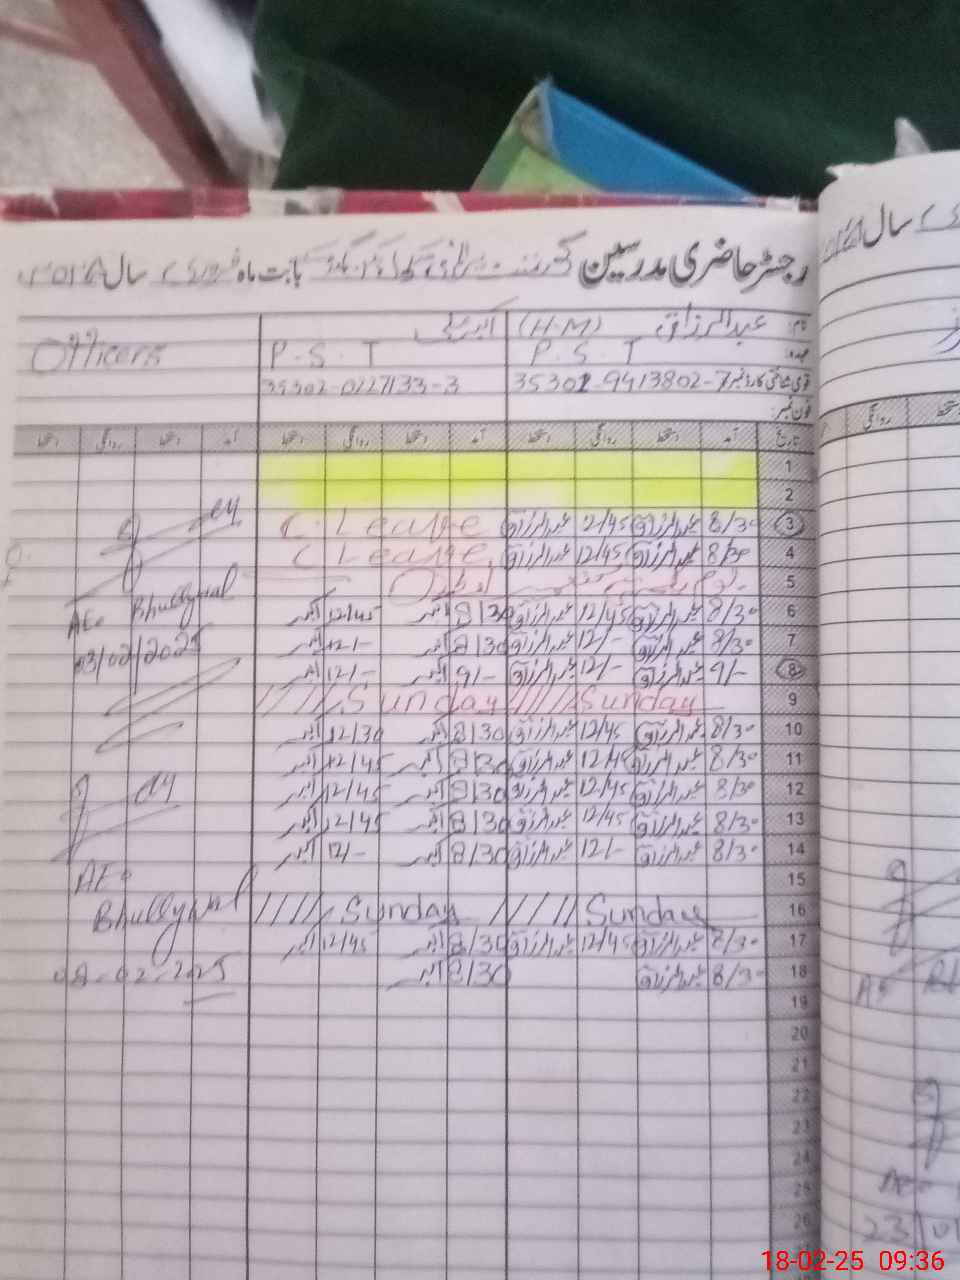 رجسٹر حاضری مدرسین بابت ماہ فروری سال
سال
نام: عبدالرزاق (H.M) اکبر علی
عہدہ: P.S.T P.S.T Officers
قومی شناختی کارڈ نمبر 35302-9413802-7 35302-0227133-3
فون نمبر:
تاریخ آمد دستخط روانگی دستخط آمد دستخط روانگی دستخط آمد دستخط روانگی دستخط
1
2
3 8/30 عبدالرزاق 12/45 عبدالرزاق C. Leave
4 8/30 عبدالرزاق 12/45 عبدالرزاق C Leave
5
6 8/30 عبدالرزاق 12/45 عبدالرزاق 8/30 اکبر 12/45 اکبر
AEo Bhullywal
7 8/30 عبدالرزاق 12/- عبدالرزاق 8/30 اکبر 12/- اکبر
03/02/2025
8 9/- عبدالرزاق 12/- عبدالرزاق 9/- اکبر 12/- اکبر
9 //// Sunday //// Sunday
10 8/30 عبدالرزاق 12/45 عبدالرزاق 8/30 اکبر 12/30 اکبر
11 8/30 عبدالرزاق 12/45 عبدالرزاق 8/30 اکبر 12/45 اکبر
12 8/30 عبدالرزاق 12/45 عبدالرزاق 8/30 اکبر 12/45 اکبر
13 8/30 عبدالرزاق 12/45 عبدالرزاق 8/30 اکبر 12/45 اکبر
14 8/30 عبدالرزاق 12/- عبدالرزاق 8/30 اکبر 12/- اکبر
15
AEo
16 //// Sunday ///// Sunday
Bhullywal
17 8/30 عبدالرزاق 12/45 عبدالرزاق 8/30 اکبر 12/45 اکبر
18 8/30 عبدالرزاق 8/30 اکبر
08-02-2025
19
20
21
22
23
24
25
26
روانگی
18-02-25 09:36